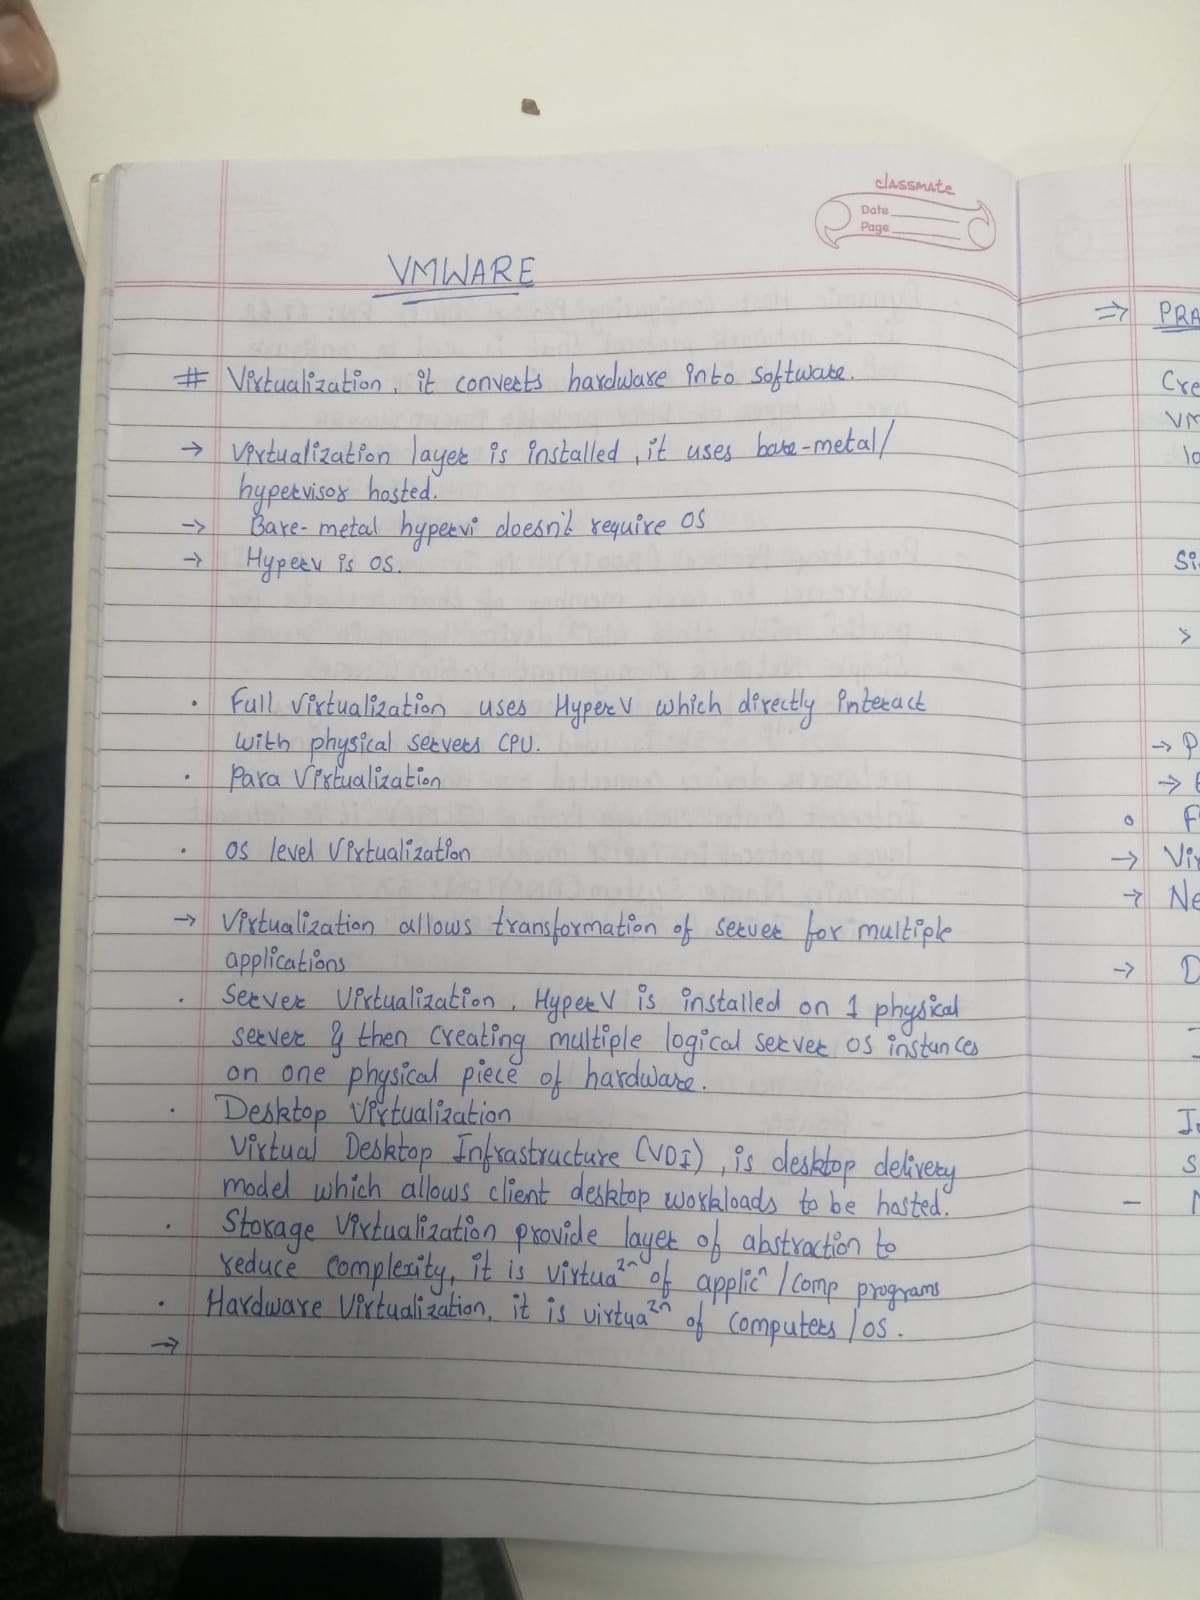 classmate
Date
Page
VMWARE
# Virtualization, it convects hardware into software.
→ Virtualization layer is installed, it uses bare-metal/
hypervisor hosted.
→ Bare-metal hypervi doesn't require OS
→ Hyperv is OS.
• Full Virtualization uses HyperV which directly interact
with physical servers CPU.
• Para Virtualization
• OS level Virtualization
→ Virtualization allows transformation of server for multiple
applications
• Server Virtualization, HyperV is installed on 1 physical
server & then creating multiple logical server OS instances
on one physical piece of hardware.
• Desktop Virtualization
Virtual Desktop Infrastructure (VDI), is desktop delivery
model which allows client desktop workloads to be hosted.
• Storage Virtualization provide layer of abstraction to
reduce complexity, it is virtua²ⁿ of applicⁿ/comp programs
• Hardware Virtualization, it is virtua²ⁿ of computers/OS.
→
⇒ PRA
Cre
VM
lo
Si
>
→ P
→
° F
→ Vir
→ Ne
→ D
S
-